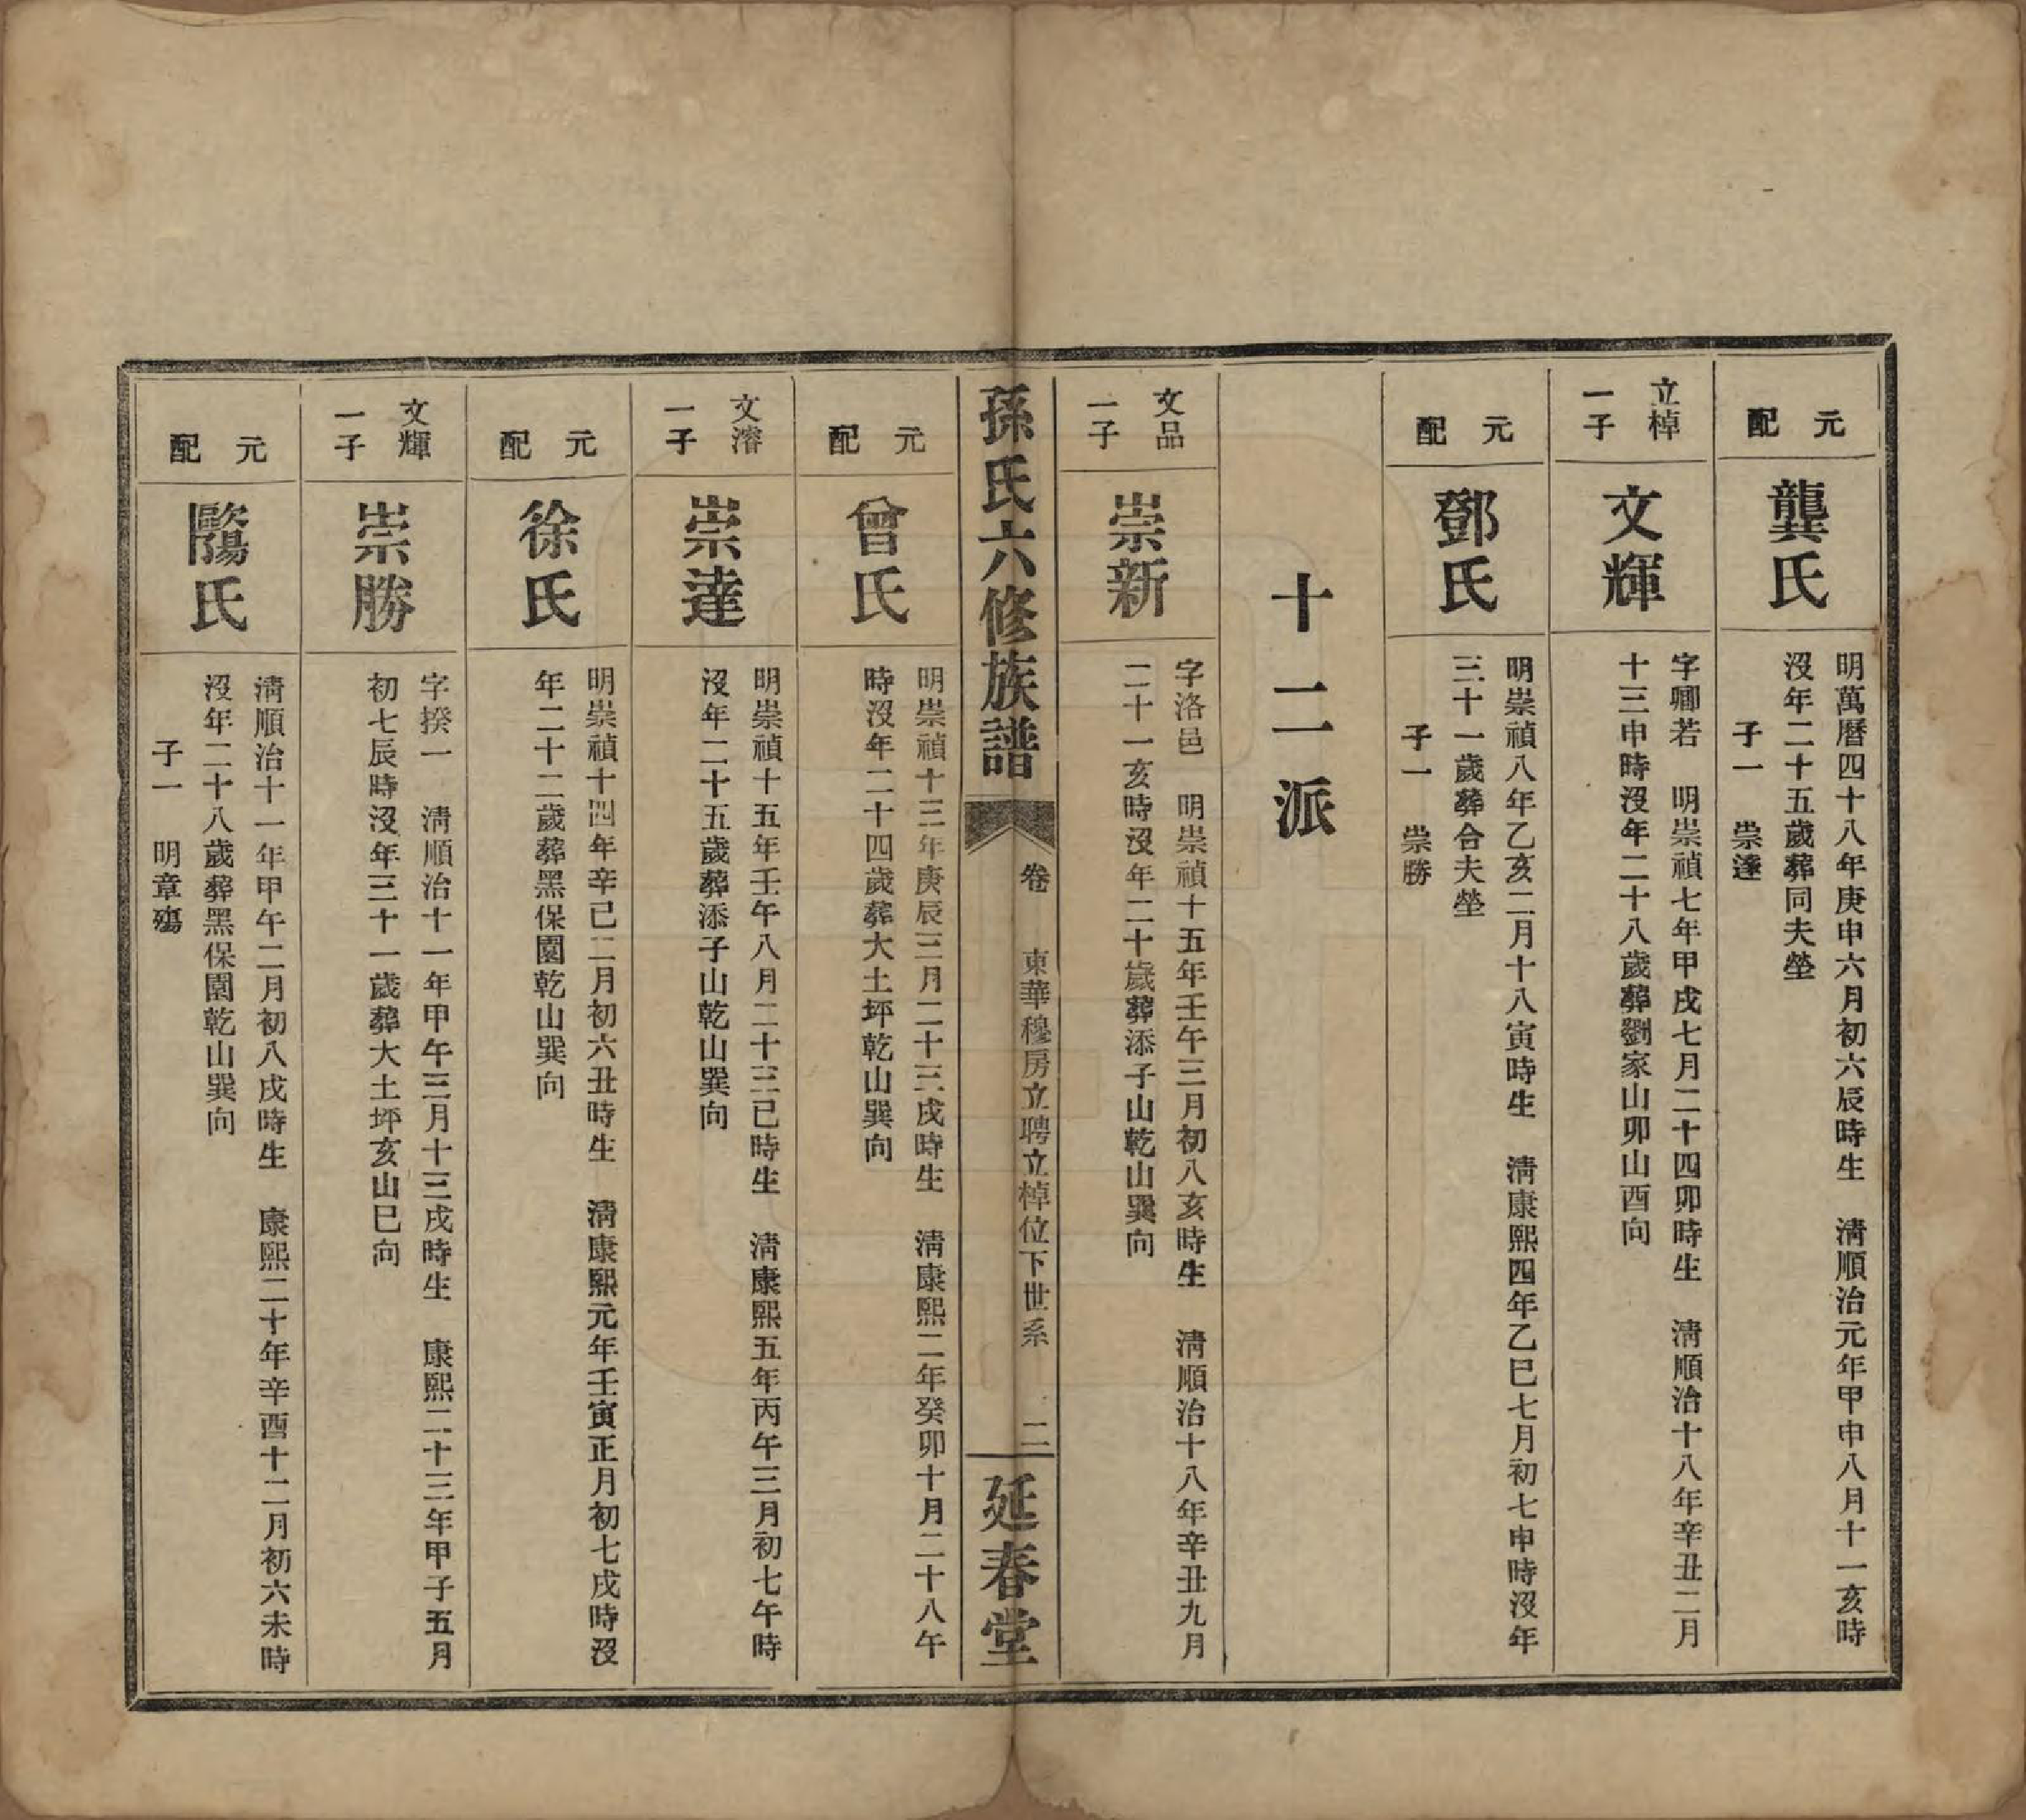 元配
龔氏
明萬曆四十八年庚申六月初六辰時生　清順治元年甲申八月十一亥時
沒年二十五歲葬同夫塋
子一　崇達
立棹
一子
文輝
字卿若　明崇禎七年甲戌七月二十四卯時生　清順治十八年辛丑二月
十三申時沒年二十八歲葬劉家山卯山酉向
元配
鄧氏
明崇禎八年乙亥二月十八寅時生　清康熙四年乙巳七月初七申時沒年
三十一歲葬合夫塋
子一　崇勝
十二派
文品
一子
崇新
字洛邑　明崇禎十五年壬午三月初八亥時生　清順治十八年辛丑九月
二十一亥時沒年二十歲葬添子山乾山巽向
孫氏六修族譜
卷　東華穆房立聘立棹位下世系　二
延春堂
元配
曾氏
明崇禎十三年庚辰三月二十三戌時生　清康熙二年癸卯十月二十八午
時沒年二十四歲葬大土坪乾山巽向
文濬
一子
崇達
明崇禎十五年壬午八月二十三巳時生　清康熙五年丙午三月初七午時
沒年二十五歲葬添子山乾山巽向
元配
徐氏
明崇禎十四年辛巳二月初六丑時生　清康熙元年壬寅正月初七戌時沒
年二十二歲葬黑保園乾山巽向
文輝
一子
崇勝
字揆一　清順治十一年甲午三月十三戌時生　康熙二十三年甲子五月
初七辰時沒年三十一歲葬大土坪亥山巳向
元配
歐陽氏
清順治十一年甲午二月初八戌時生　康熙二十年辛酉十二月初六未時
沒年二十八歲葬黑保園乾山巽向
子一　明章殤